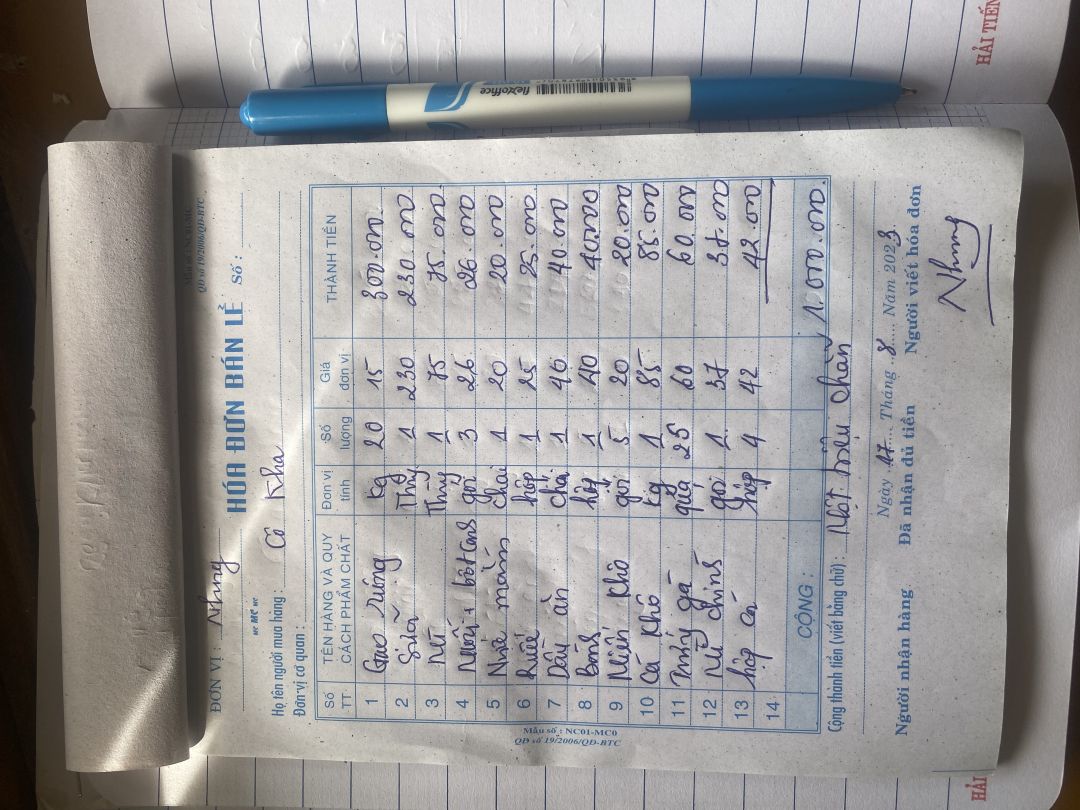 HẢI TIẾN
flexoffice
Mẫu số: NC01-MC
QĐ số 19/2006/QĐ-BTC
ĐƠN VỊ : Nhung
HÓA ĐƠN BÁN LẺ Số :
Họ tên người mua hàng : Cô Kha
Đơn vị cơ quan :
Số TT TÊN HÀNG VÀ QUY CÁCH PHẨM CHẤT Đơn vị tính Số lượng Giá đơn vị THÀNH TIỀN
1 Gạo ruộng kg 20 15 300.000
2 Sữa Thùg 1 230 230.000
3 Mì Thùg 1 75 75.000
4 Muối + bột canh gói 3 26 26.000
5 Nước mắm chai 1 20 20.000
6 hộp 1 25 25.000
7 Dầu ăn chai 1 40 40.000
8 Bông hộp 1 40 40.000
9 Miến Khô gói 5 20 20.000
10 Cá Khô kg 1 85 85.000
11 Trứng gà quả 25 60 60.000
12 Mì chính gói 1 37 37.000
13 hộp cá hộp 4 42 42.000
14
CỘNG : 1.000.000.
Cộng thành tiền (viết bằng chữ) : Một triệu chẵn
Ngày 17 Tháng 8 Năm 2023
Người nhận hàng Đã nhận đủ tiền Người viết hóa đơn
Nhung
Mẫu số : NC01-MC0
QĐ số 19/2006/QĐ-BTC
HẢI